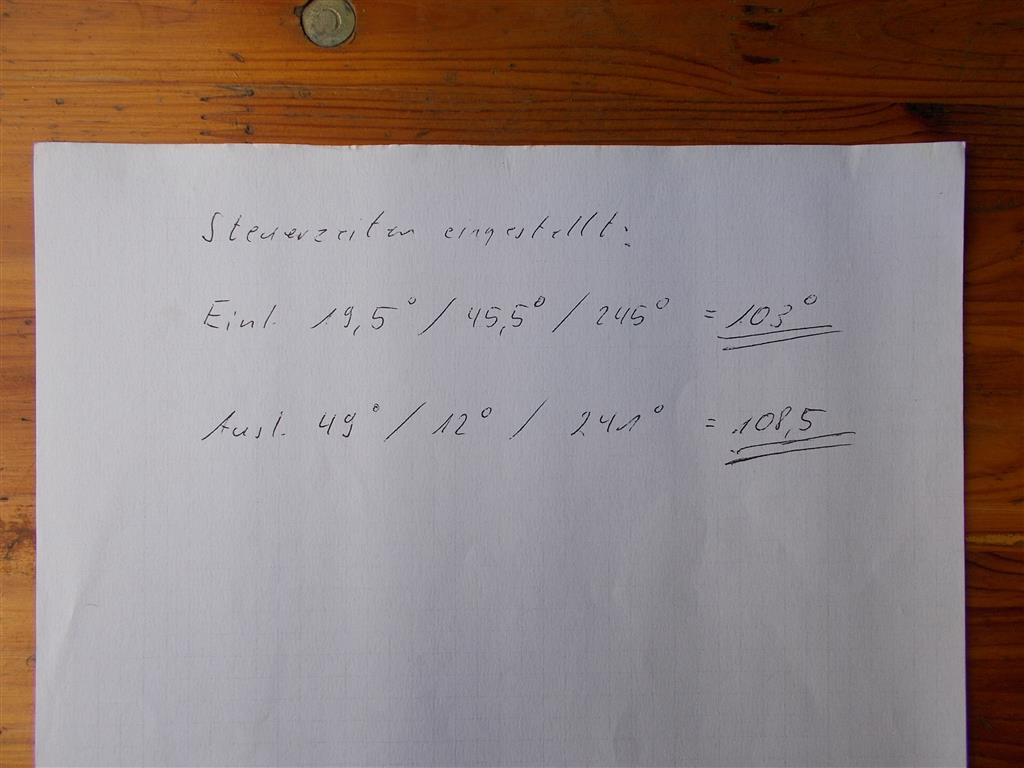 Steuerzeiten eingestellt:
Einl. 19,5° / 45,5° / 245° = 103°
Ausl. 49° / 12° / 241° = 108,5